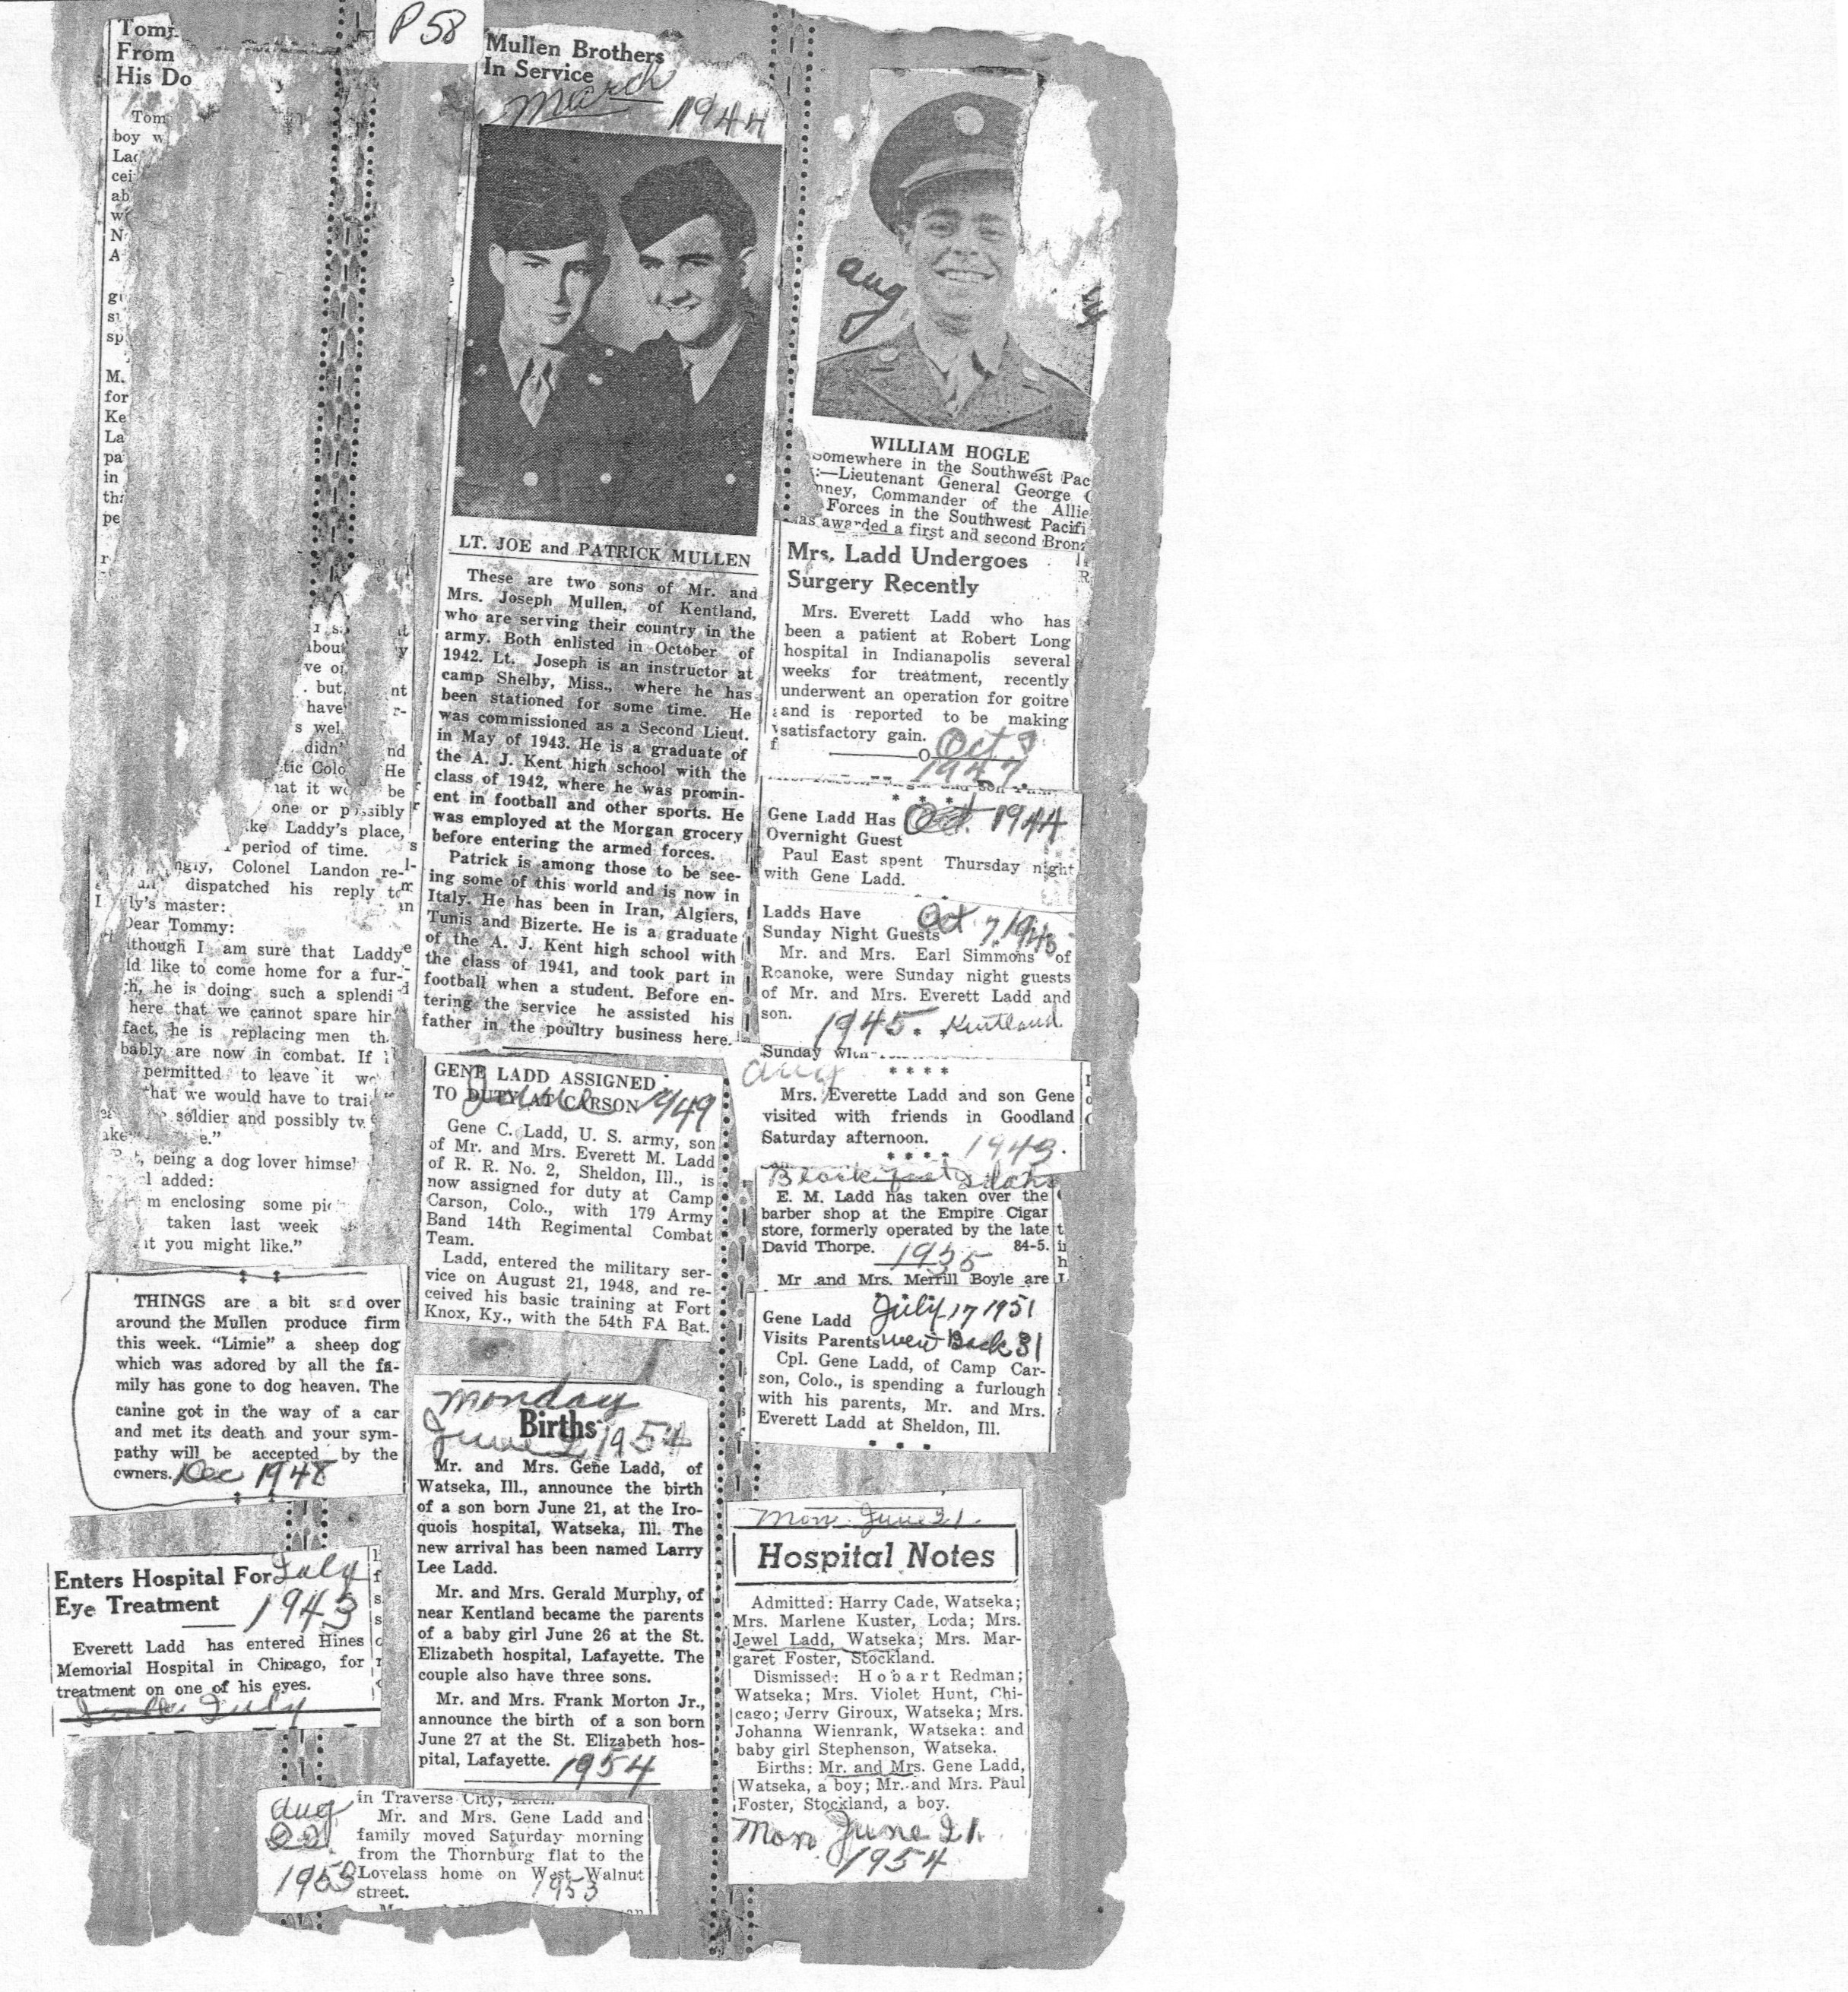 P 58
Tom
From
His Do
Tom
boy w
cei
ab
N
A
sp
M.
for
Ke
La
pa
in
tha
pe
nt
but
have
s wel
didn'
nd
tic Colo
He
hat it
be
one or possibly
Laddy's place,
period of time.
Colonel Landon re-
dispatched his reply to
ly's master:
Dear Tommy:
though I am sure that Laddy
ld like to come home for a fur-
h, he is doing such a splendi
here that we cannot spare hir
fact, he is replacing men th
bably are now in combat. If
permitted to leave it
that we would have to trai
soldier and possibly tw
e."
being a dog lover himsel
l added:
m enclosing some pic
taken last week
t you might like."
THINGS are a bit sad over
around the Mullen produce firm
this week. "Limie" a sheep dog
which was adored by all the fa-
mily has gone to dog heaven. The
canine got in the way of a car
and met its death and your sym-
pathy will be accepted by the
owners. Dec 1948
Enters Hospital For July
Eye Treatment 1943
Everett Ladd has entered Hines
Memorial Hospital in Chicago, for
treatment on one of his eyes.
July
Mullen Brothers
In Service
March 1944
LT. JOE and PATRICK MULLEN
These are two sons of Mr. and
Mrs. Joseph Mullen, of Kentland,
who are serving their country in the
army. Both enlisted in October of
1942. Lt. Joseph is an instructor at
camp Shelby, Miss., where he has
been stationed for some time. He
was commissioned as a Second Lieut.
in May of 1943. He is a graduate of
the A. J. Kent high school with the
class of 1942, where he was promin-
ent in football and other sports. He
was employed at the Morgan grocery
before entering the armed forces.
Patrick is among those to be see-
ing some of this world and is now in
Italy. He has been in Iran, Algiers,
Tunis and Bizerte. He is a graduate
of the A. J. Kent high school with
the class of 1941, and took part in
football when a student. Before en-
tering the service he assisted his
father in the poultry business here.
GENE LADD ASSIGNED
TO DUTY AT CARSON
June 1949
Gene C. Ladd, U. S. army, son
of Mr. and Mrs. Everett M. Ladd
of R. R. No. 2, Sheldon, Ill., is
now assigned for duty at Camp
Carson, Colo., with 179 Army
Band 14th Regimental Combat
Team.
Ladd, entered the military ser-
vice on August 21, 1948, and re-
ceived his basic training at Fort
Knox, Ky., with the 54th FA Bat.
Monday
Births
June 21 1954
Mr. and Mrs. Gene Ladd, of
Watseka, Ill., announce the birth
of a son born June 21, at the Iro-
quois hospital, Watseka, Ill. The
new arrival has been named Larry
Lee Ladd.
Mr. and Mrs. Gerald Murphy, of
near Kentland became the parents
of a baby girl June 26 at the St.
Elizabeth hospital, Lafayette. The
couple also have three sons.
Mr. and Mrs. Frank Morton Jr.,
announce the birth of a son born
June 27 at the St. Elizabeth hos-
pital, Lafayette. 1954
in Traverse City, Mich.
Aug
22
1953
Mr. and Mrs. Gene Ladd and
family moved Saturday morning
from the Thornburg flat to the
Lovelass home on West Walnut
street. 1953
Aug
WILLIAM HOGLE
Somewhere in the Southwest Pac
:—Lieutenant General George
nney, Commander of the Allie
Forces in the Southwest Pacifi
as awarded a first and second Bron
Mrs. Ladd Undergoes
Surgery Recently
Mrs. Everett Ladd who has
been a patient at Robert Long
hospital in Indianapolis several
weeks for treatment, recently
underwent an operation for goitre
and is reported to be making
satisfactory gain. Oct 9
1947
Gene Ladd Has Oct. 1944
Overnight Guest
Paul East spent Thursday night
with Gene Ladd.
Ladds Have
Sunday Night Guests Oct 7, 1945
Mr. and Mrs. Earl Simmons of
Roanoke, were Sunday night guests
of Mr. and Mrs. Everett Ladd and
son.
1945. Kentland
Sunday
Aug
* * * *
Mrs. Everette Ladd and son Gene
visited with friends in Goodland
Saturday afternoon.
* * * * 1943.
Blackfoot Idaho
E. M. Ladd has taken over the
barber shop at the Empire Cigar
store, formerly operated by the late
David Thorpe. 1935 84-5.
Mr and Mrs. Merrill Boyle are
Gene Ladd July 17 1951
Visits Parents went Back 31
Cpl. Gene Ladd, of Camp Car-
son, Colo., is spending a furlough
with his parents, Mr. and Mrs.
Everett Ladd at Sheldon, Ill.
Mon June 21.
Hospital Notes
Admitted: Harry Cade, Watseka;
Mrs. Marlene Kuster, Loda; Mrs.
Jewel Ladd, Watseka; Mrs. Mar-
garet Foster, Stockland.
Dismissed: Hobart Redman;
Watseka; Mrs. Violet Hunt, Chi-
cago; Jerry Giroux, Watseka; Mrs.
Johanna Wienrank, Watseka; and
baby girl Stephenson, Watseka.
Births: Mr. and Mrs. Gene Ladd,
Watseka, a boy; Mr. and Mrs. Paul
Foster, Stockland, a boy.
Mon June 21.
1954